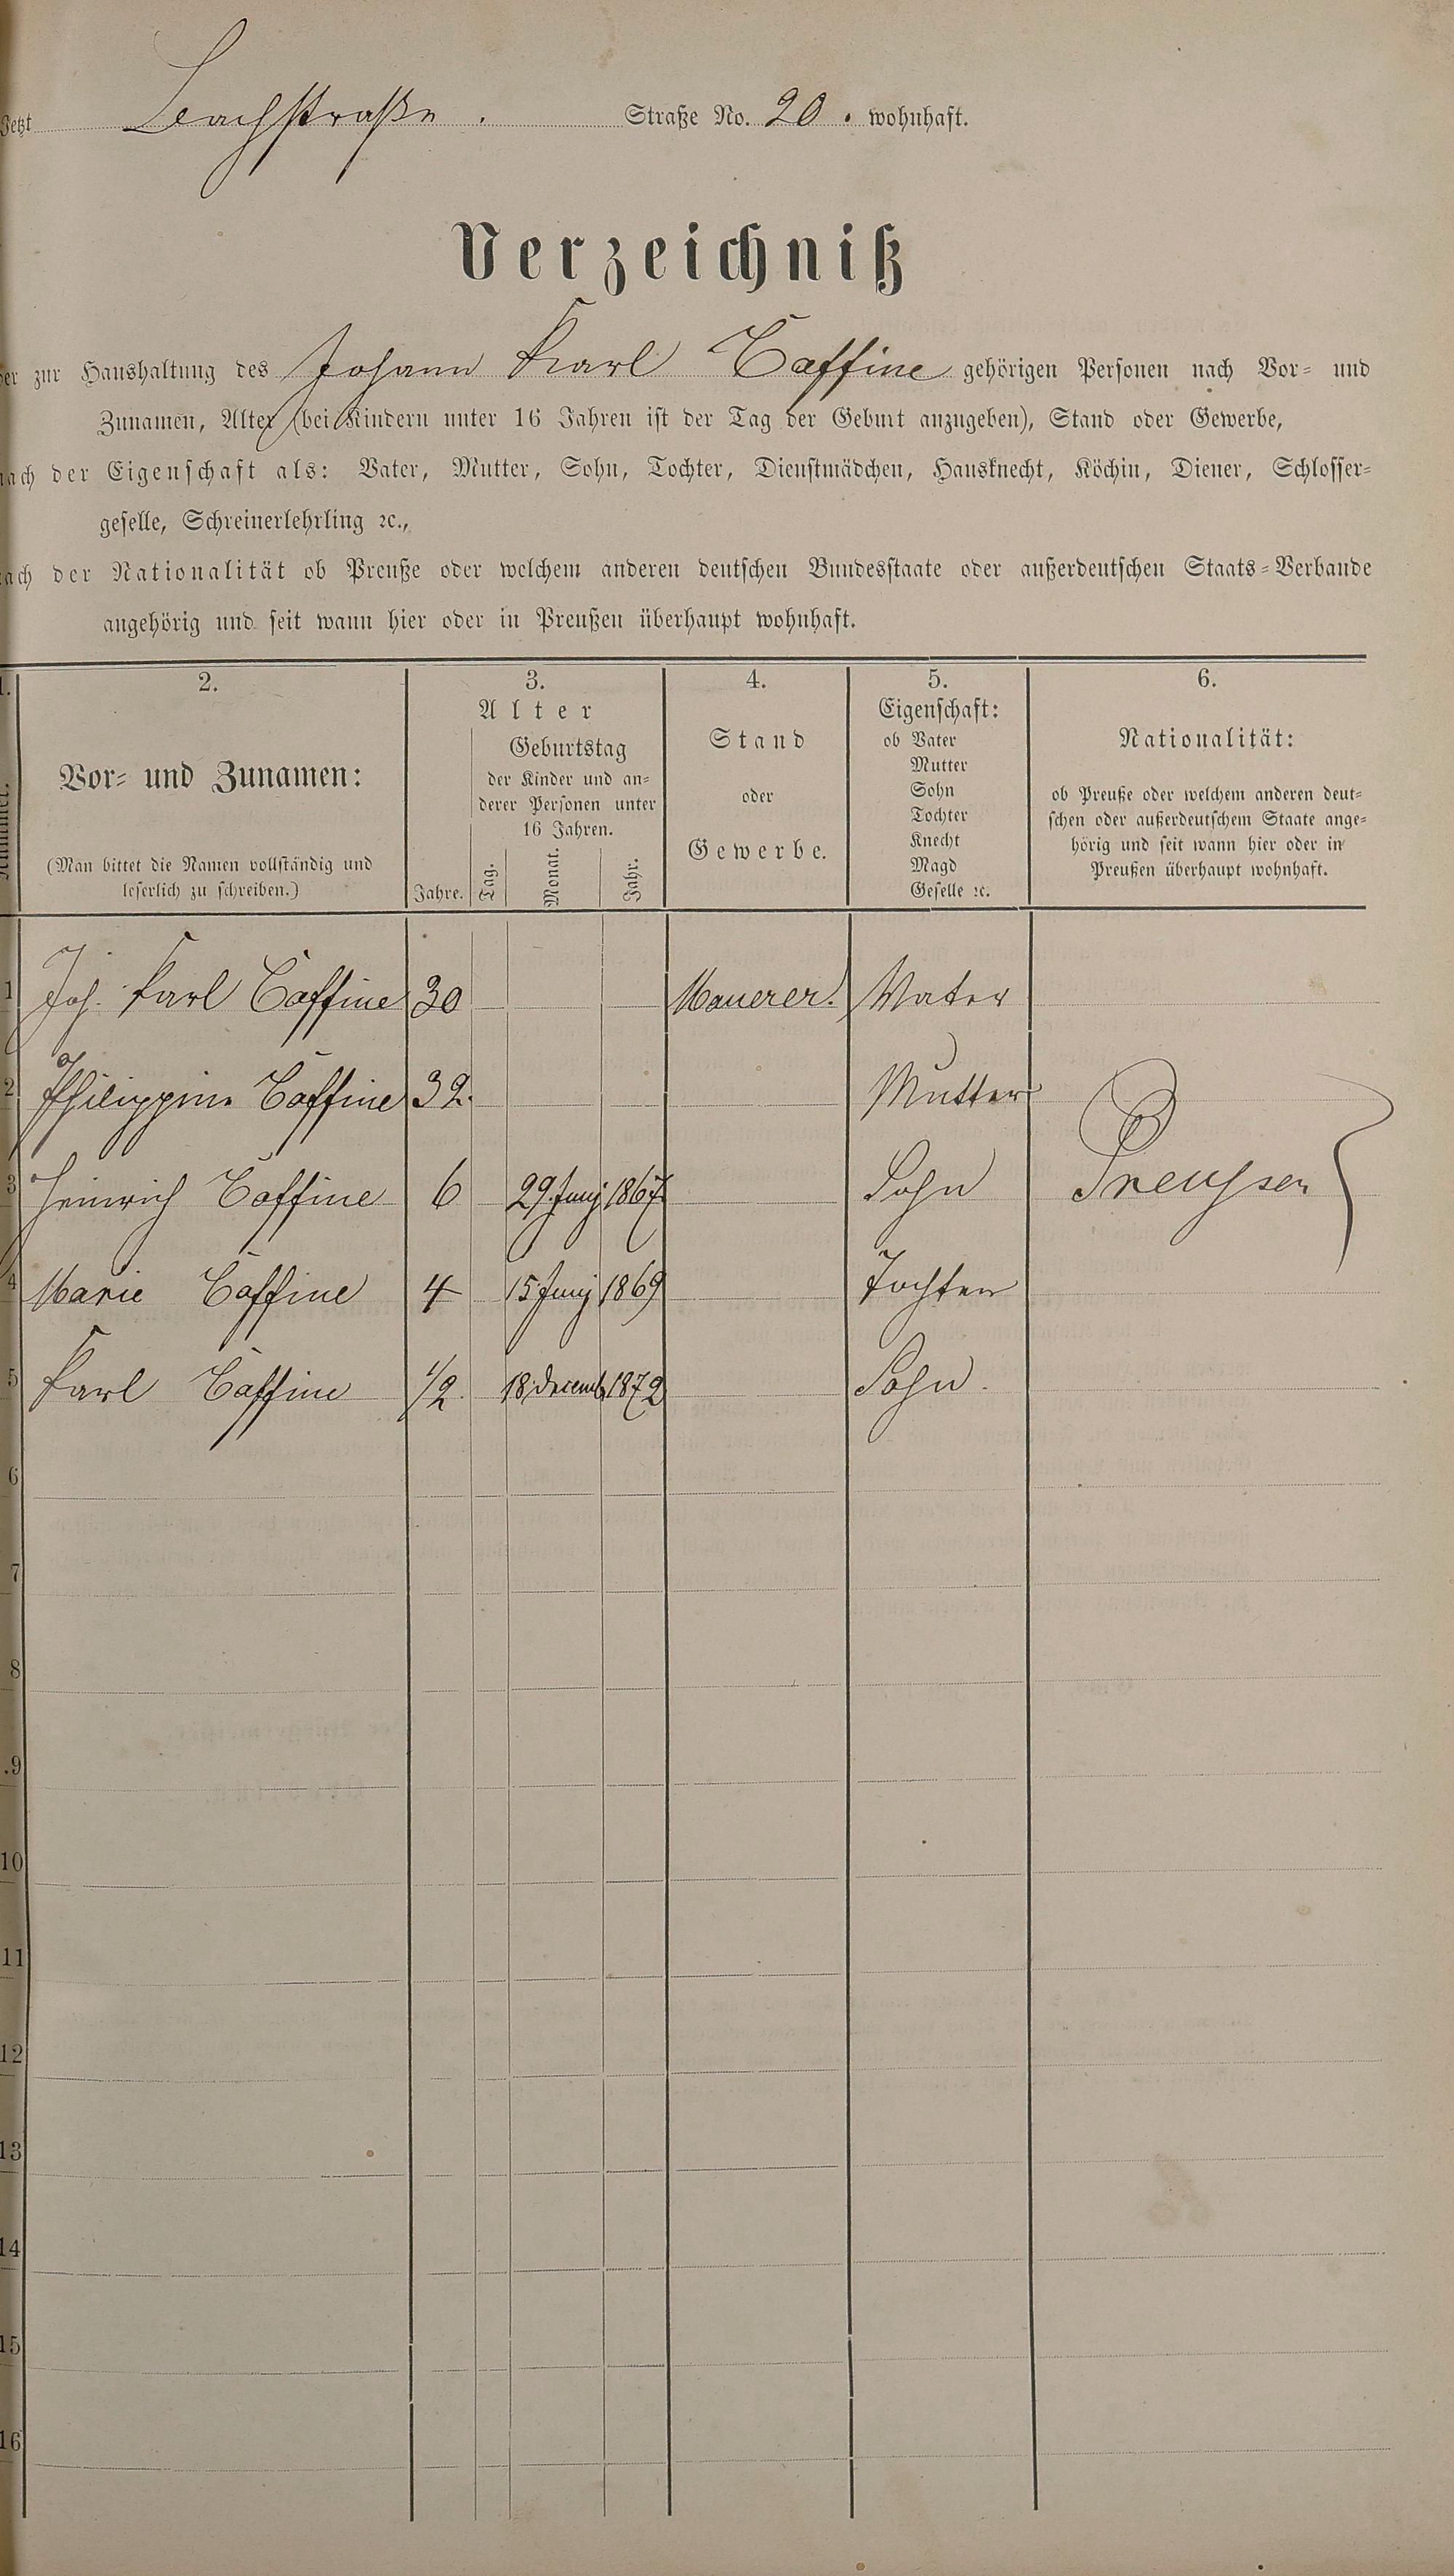 Jetzt Bachstraße. Straße No. 20. wohnhaft.
Verzeichniß
der zur Haushaltung des Johann Karl Caffine gehörigen Personen nach Vor- und
Zunamen, Alter (bei Kindern unter 16 Jahren ist der Tag der Geburt anzugeben), Stand oder Gewerbe,
nach der Eigenschaft als: Vater, Mutter, Sohn, Tochter, Dienstmädchen, Hausknecht, Köchin, Diener, Schlosser-
geselle, Schreinerlehrling ꝛc.,
nach der Nationalität ob Preuße oder welchem anderen deutschen Bundesstaate oder außerdeutschen Staats-Verbande
angehörig und seit wann hier oder in Preußen überhaupt wohnhaft.
1. 2. 3. 4. 5. 6.
Nummer.
Vor- und Zunamen:
(Man bittet die Namen vollständig und
leserlich zu schreiben.)
Alter
Jahre.
Geburtstag
der Kinder und an-
derer Personen unter
16 Jahren.
Tag. Monat. Jahr.
Stand
oder
Gewerbe.
Eigenschaft:
ob Vater
Mutter
Sohn
Tochter
Knecht
Magd
Geselle ꝛc.
Nationalität:
ob Preuße oder welchem anderen deut-
schen oder außerdeutschem Staate ange-
hörig und seit wann hier oder in
Preußen überhaupt wohnhaft.
1 Joh. Karl Caffine 30 Mauerer. Vater
2 Philippine Caffine 32. Mutter
3 Heinrich Caffine 6 29. Juny 1867 Sohn Preussen
4 Marie Caffine 4 15 Juny 1869 Tochter
5 Karl Caffine 1/2 18 decemb 1872 Sohn.
6
7
8
9
10
11
12
13
14
15
16